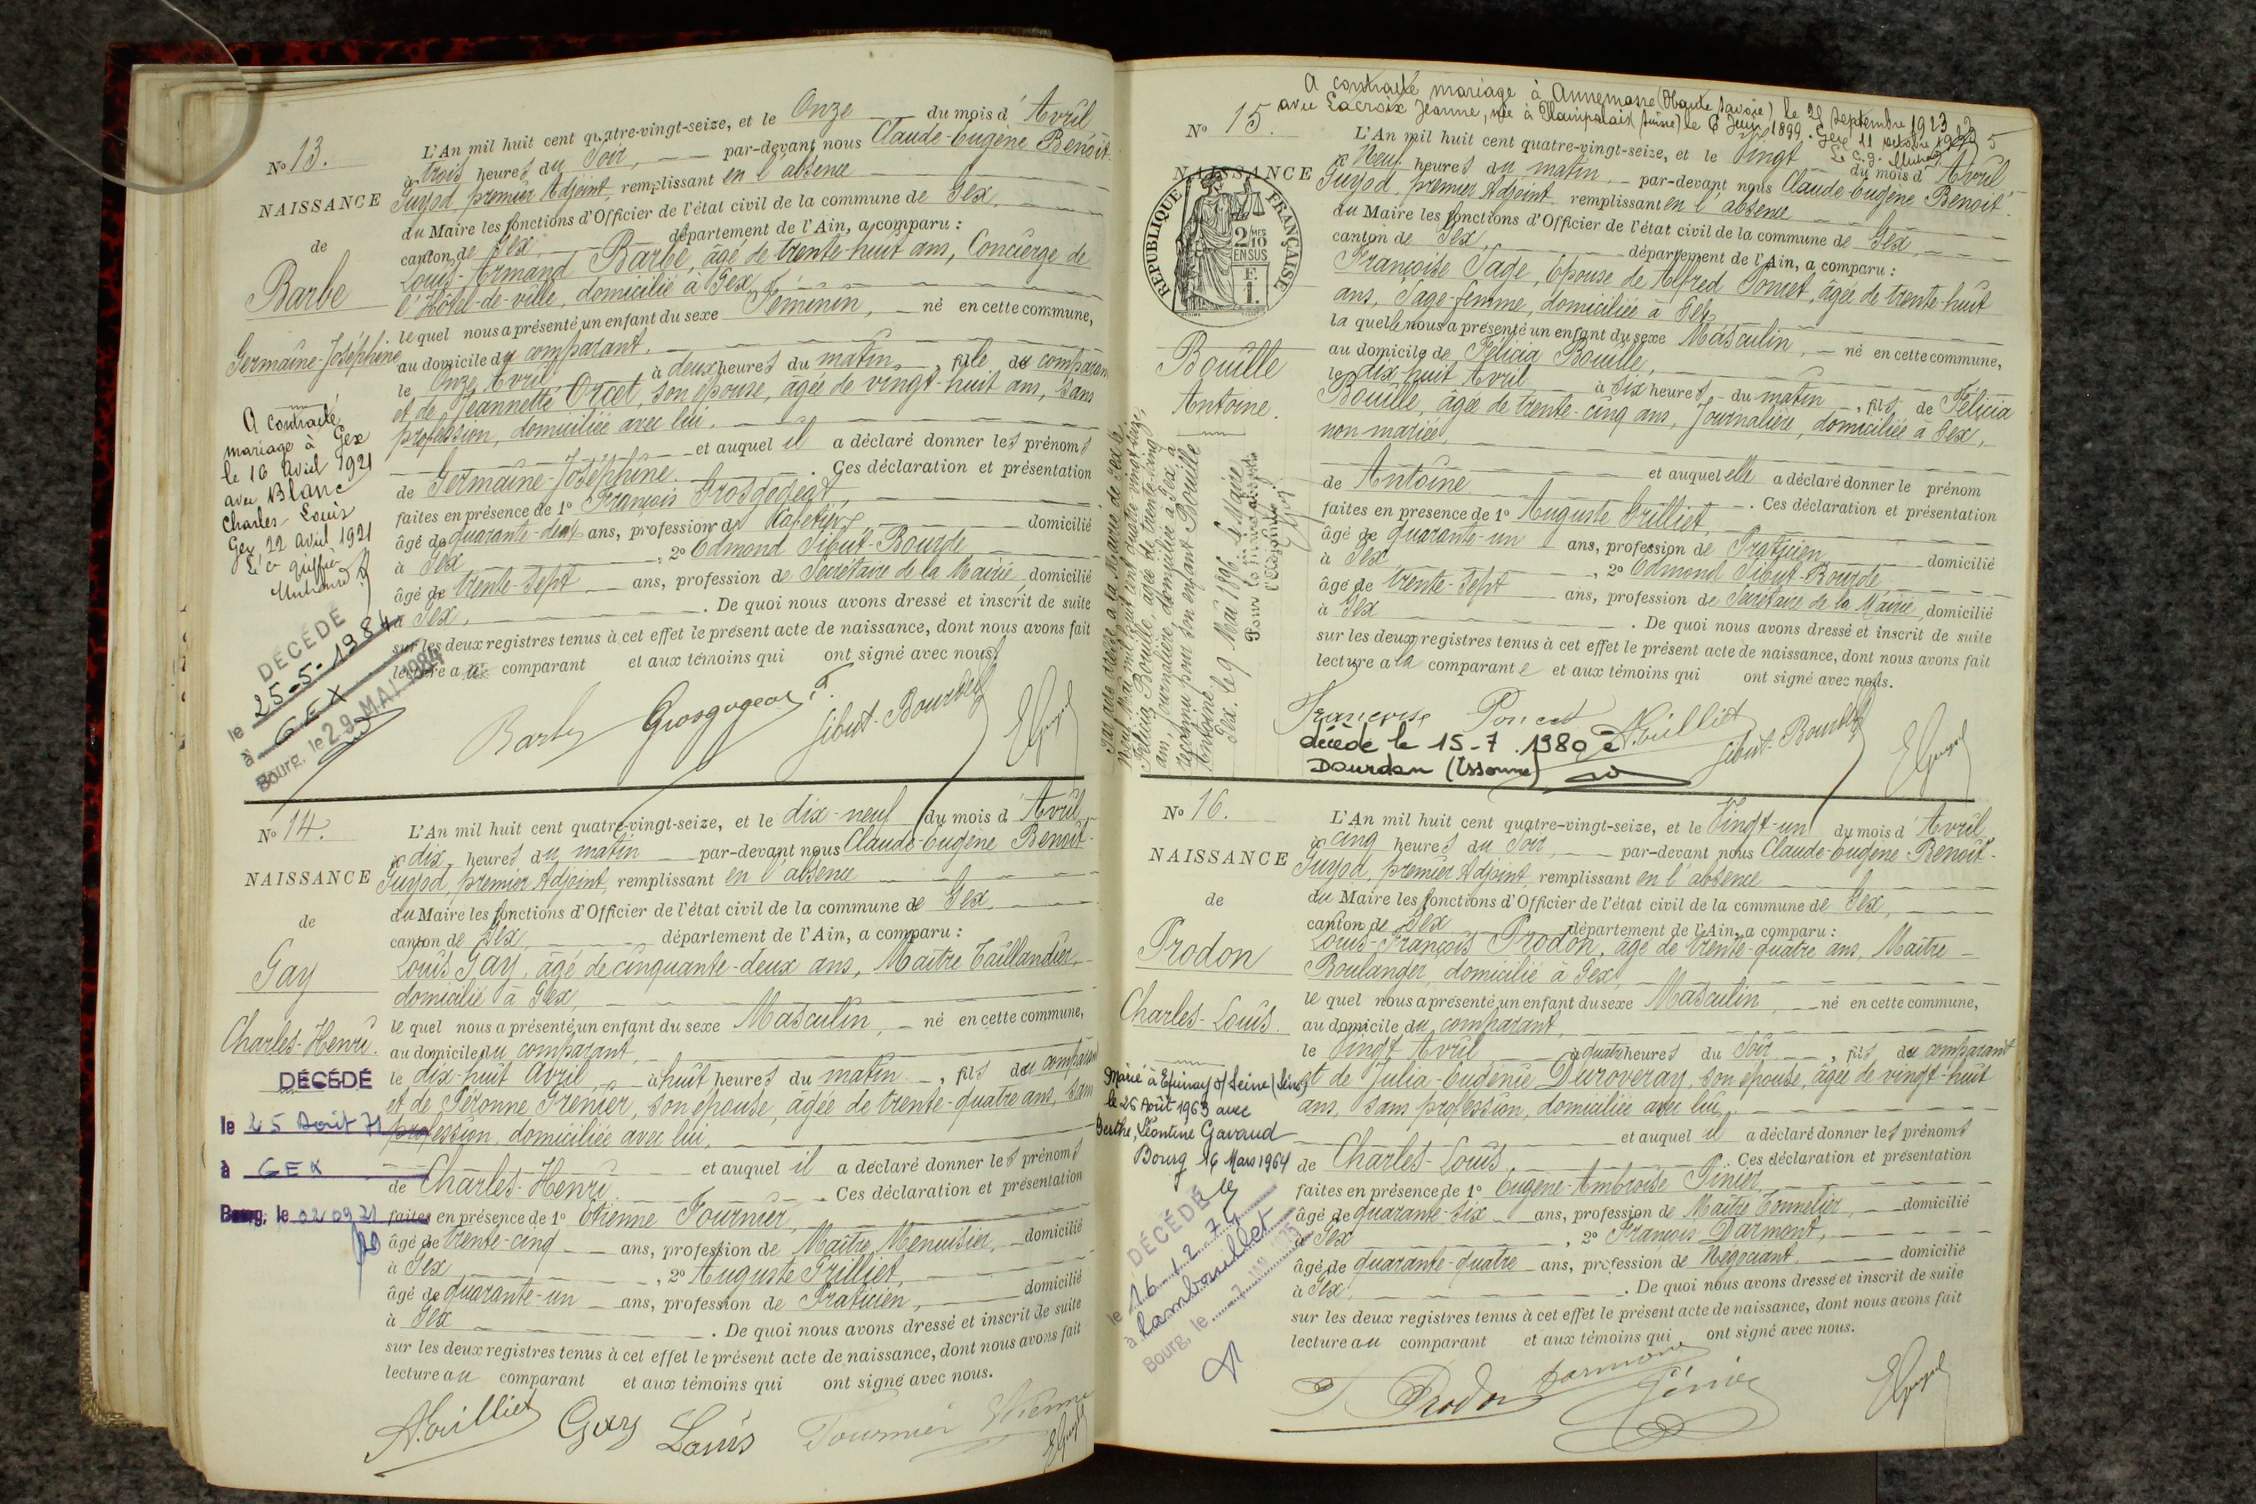 No 13.
NAISSANCE
de
Barbe
Germaine-Joséphine
A contracté
mariage à Gex
le 16 avril 1921
avec Blanc
Charles-Louis
Gex, 22 avril 1921
DÉCÉDÉ
le 25-5-1984
à GEX
Bourg, le 29 MAI 1984
L'An mil huit cent quatre-vingt-seize, et le Onze du mois d'Avril
à trois heures du Soir, par-devant nous Claude-Eugène Benoit-
Guyod premier Adjoint, remplissant en l'absence
du Maire les fonctions d'Officier de l'état civil de la commune de Gex,
canton de Gex, département de l'Ain, a comparu :
Louis-Armand Barbe, âgé de trente-huit ans, Concierge de
l'Hôtel-de-ville, domicilié à Gex,
lequel nous a présenté un enfant du sexe Féminin, né en cette commune,
au domicile du comparant,
le Onze Avril à deux heures du matin, fille du comparant
et de Jeannette Orcel, son épouse, âgée de vingt-huit ans, sans
profession, domiciliée avec lui,
et auquel il a déclaré donner les prénoms
de Germaine-Joséphine. Ces déclaration et présentation
faites en présence de 1º François Grosgogeat,
âgé de quarante-deux ans, profession de Cafetier, domicilié
à Gex, 2º Edmond Gibut-Bourde
âgé de trente-sept ans, profession de Secrétaire de la Mairie, domicilié
à Gex, . De quoi nous avons dressé et inscrit de suite
sur les deux registres tenus à cet effet le présent acte de naissance, dont nous avons fait
lecture au comparant et aux témoins qui ont signé avec nous.
Barbe Grosgogeat F. Gibut-Bourde EGuyod
No 14.
NAISSANCE
de
Gay
Charles-Henri.
DÉCÉDÉ
le 25 Août 71
à GEX
Bourg, le 02 09 71
L'An mil huit cent quatre-vingt-seize, et le dix-neuf du mois d'Avril
à dix heures du matin par-devant nous Claude-Eugène Benoit-
Guyod, premier Adjoint, remplissant en l'absence
du Maire les fonctions d'Officier de l'état civil de la commune de Gex,
canton de Gex, département de l'Ain, a comparu :
Louis Gay, âgé de cinquante-deux ans, Maître Taillandier,
domicilié à Gex,
lequel nous a présenté un enfant du sexe Masculin, né en cette commune,
au domicile du comparant,
le dix-huit Avril, à huit heures du matin, fils du comparant
et de Péronne Grenier, son épouse, âgée de trente-quatre ans, sans
profession, domiciliée avec lui,
et auquel il a déclaré donner les prénoms
de Charles-Henri. Ces déclaration et présentation
faites en présence de 1º Etienne Fournier,
âgé de trente-cinq ans, profession de Maître Menuisier, domicilié
à Gex, 2º Auguste Grilliet,
âgé de quarante-un ans, profession de Praticien, domicilié
à Gex . De quoi nous avons dressé et inscrit de suite
sur les deux registres tenus à cet effet le présent acte de naissance, dont nous avons fait
lecture au comparant et aux témoins qui ont signé avec nous.
A. Grilliet Gay Louis Fournier Etienne EGuyod
A contracté mariage à Annemasse (Haute Savoie) le 29 septembre 1923
avec Lacroix Jeanne, née à le 6 Juin 1899. Gex 11 octobre 1923
5
No 15.
NAISSANCE
RÉPUBLIQUE FRANÇAISE
2/10 MES
EN SUS
F.
1.
Bouille
Antoine.
Par acte dressé à la Mairie de Gex le
neuf Mai mil huit cent quatre-vingt-seize,
Félicia Bouille, âgée de trente-cinq
ans, journalière, domiciliée à Gex, a
reconnu pour son enfant Bouille
Antoine.
Gex, le 9 Mai 1896.
Le Maire
Pour le Maire absent
l'Adjoint,
L'An mil huit cent quatre-vingt-seize, et le Vingt du mois d'Avril
à Neuf heures du matin, par-devant nous Claude-Eugène Benoit-
Guyod, premier Adjoint remplissant en l'absence
du Maire les fonctions d'Officier de l'état civil de la commune de Gex,
canton de Gex, département de l'Ain, a comparu :
Françoise Sage, épouse de Alfred Poncet, âgée de trente-huit
ans, Sage-femme, domiciliée à Gex,
laquelle nous a présenté un enfant du sexe Masculin, né en cette commune,
au domicile de Félicia Bouille,
le dix-huit Avril à six heures du matin, fils de Félicia
Bouille, âgée de trente-cinq ans, Journalière, domiciliée à Gex,
non mariée,
et auquel elle a déclaré donner le prénom
de Antoine . Ces déclaration et présentation
faites en presence de 1º Auguste Grilliet,
âgé de quarante-un ans, profession de Praticien domicilié
à Gex, 2º Edmond Gibut-Bourde
âgé de trente-sept ans, profession de Secrétaire de la Mairie, domicilié
à Gex . De quoi nous avons dressé et inscrit de suite
sur les deux registres tenus à cet effet le présent acte de naissance, dont nous avons fait
lecture a la comparante et aux témoins qui ont signé avec nous.
Françoise Poncet A. Grilliet Gibut-Bourde EGuyod
décédé le 15-7.1980 à
Dourdan (Essonne)
No 16.
NAISSANCE
de
Prodon
Charles-Louis.
Marié à Epinay s/Seine (Seine)
le 26 Août 1963 avec
Berthe, Léontine Gavaud
Bourg 16 Mars 1964
DÉCÉDÉ
le 16.12.74
à Rambouillet
Bourg, le
L'An mil huit cent quatre-vingt-seize, et le Vingt-un du mois d'Avril
à cinq heures du Soir, par-devant nous Claude-Eugène-Benoit-
Guyod, premier Adjoint, remplissant en l'absence
du Maire les fonctions d'Officier de l'état civil de la commune de Gex,
canton de Gex département de l'Ain, a comparu :
Louis-François Prodon, âgé de trente-quatre ans, Maître
Boulanger, domicilié à Gex,
lequel nous a présenté un enfant du sexe Masculin, né en cette commune,
au domicile du comparant,
le Vingt Avril à quatre heures du Soir, fils du comparant
et de Julia-Eugénie Duroveray, son épouse, âgée de vingt-huit
ans, sans profession, domiciliée avec lui,
et auquel il a déclaré donner les prénoms
de Charles-Louis. Ces déclaration et présentation
faites en présence de 1º Eugène-Ambroise Pinier,
âgé de quarante-six ans, profession de Maître Tonnelier, domicilié
à Gex, 2º François Darmont,
âgé de quarante-quatre ans, profession de Négociant. domicilié
à Gex, . De quoi nous avons dressé et inscrit de suite
sur les deux registres tenus à cet effet le présent acte de naissance, dont nous avons fait
lecture au comparant et aux témoins qui ont signé avec nous.
Prodon Darmont EGuyod